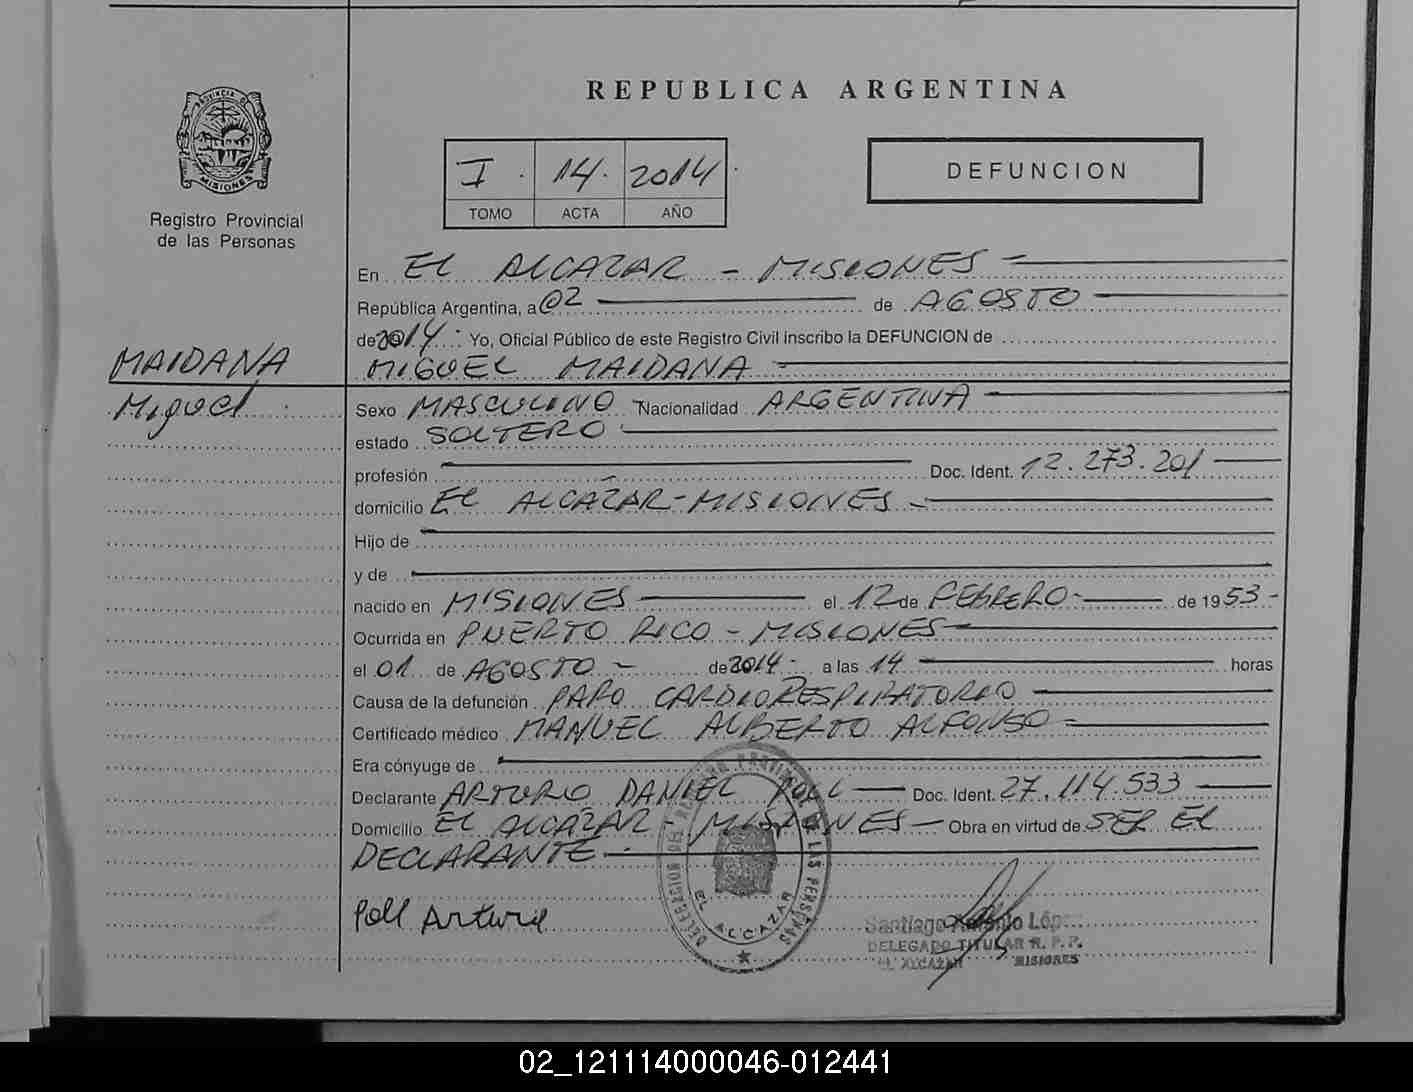 REPUBLICA ARGENTINA
PROVINCIA D MISIONES
Registro Provincial
de las Personas
I. 14. 2014.
TOMO ACTA AÑO
DEFUNCION
En EL ALCAZAR - MISIONES -
República Argentina, a 02 de AGOSTO
de 2014. Yo, Oficial Público de este Registro Civil inscribo la DEFUNCION de
MAIDANA
MIGUEL MAIDANA
Miguel
Sexo MASCULINO Nacionalidad ARGENTINA
estado SOLTERO
profesión Doc. Ident. 12.273.201
domicilio EL ALCAZAR-MISIONES -
Hijo de
y de
nacido en MISIONES el 12 de FEBRERO- de 1953-
Ocurrida en PUERTO RICO - MISIONES
el 01 de AGOSTO - de 2014- a las 14 horas
Causa de la defunción PARO CARDIORESPIRATORIO
Certificado médico MANUEL ALBERTO ALFONSO
Era cónyuge de
Declarante ARTURO DANIEL POLL Doc. Ident. 27.114.533
Domicilio EL ALCAZAR- MISIONES - Obra en virtud de SER EL
DECLARANTE.
Poll Arturo
DELEGACION DEL REGISTRO PROVINCIAL DE LAS PERSONAS
EL ALCAZAR
Santiago Antonio López
DELEGADO TITULAR R. P. P.
EL ALCAZAR MISIONES
02_121114000046-012441